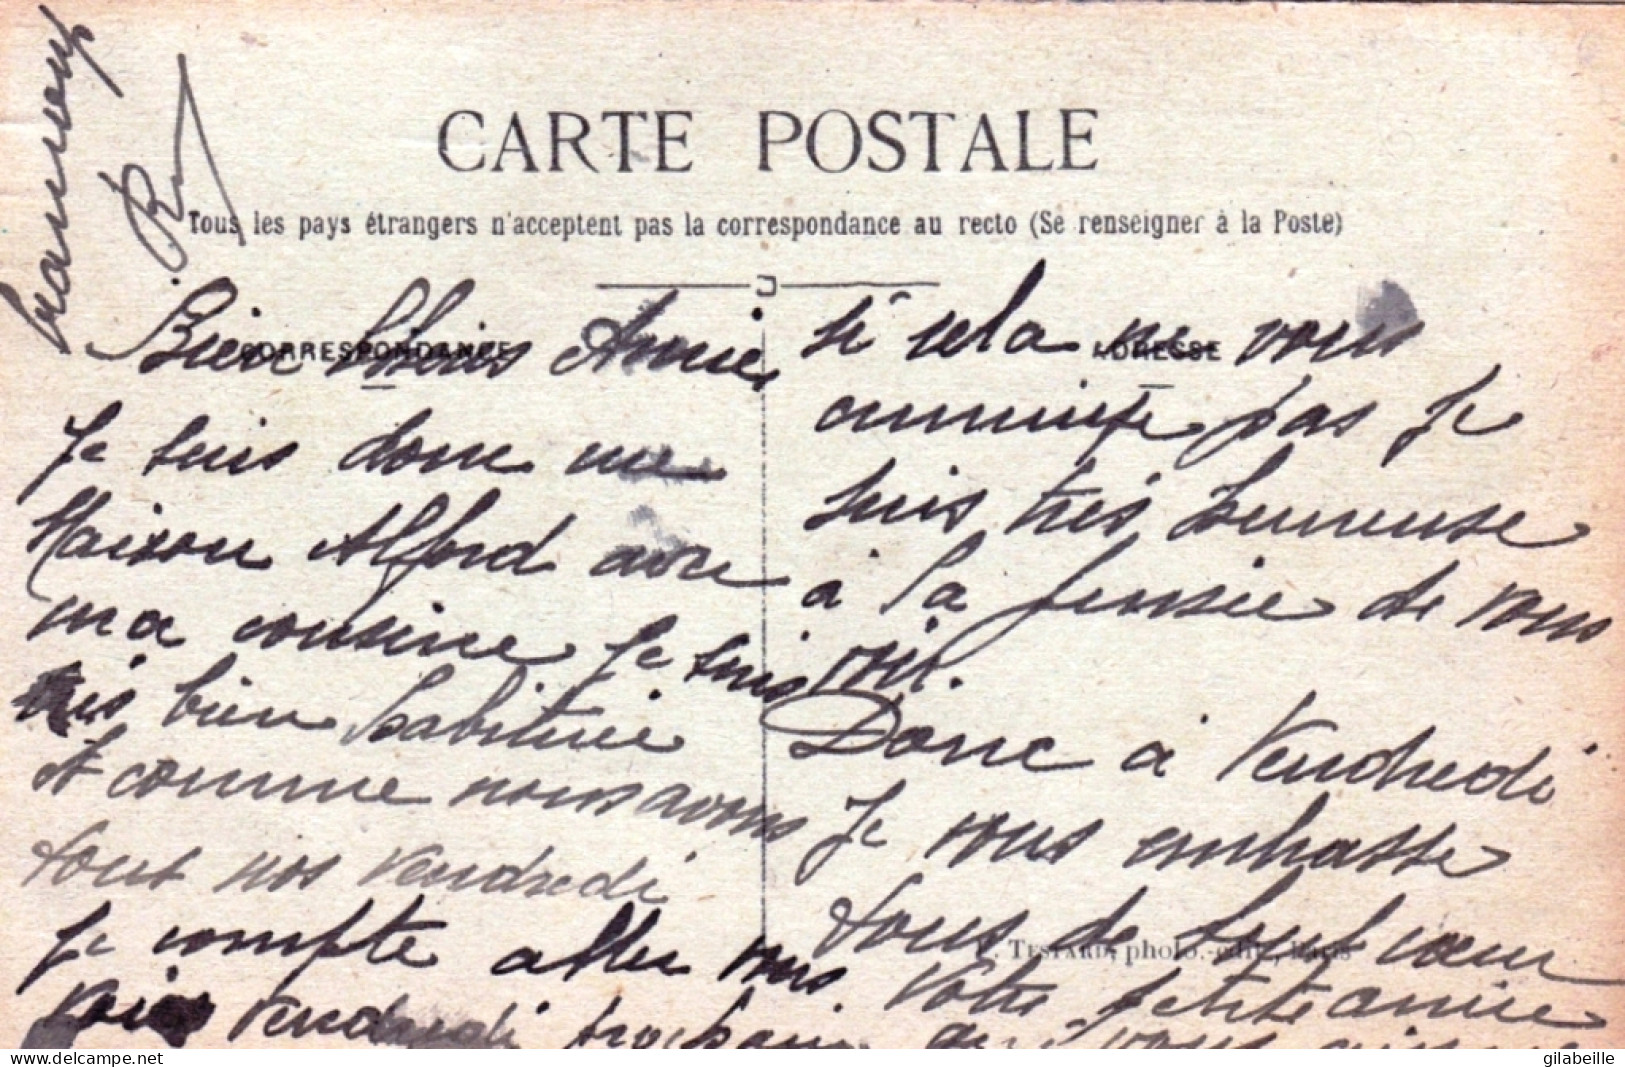 CARTE POSTALE
Tous les pays étrangers n'acceptent pas la correspondance au recto (Se renseigner à la Poste)
CORRESPONDANCE
Bien Chères Amie,
Je suis donc
Maison Alford avec
ma cousine Je suis
bien habituée
et comme nous avons
tout nos Vendredi
Je compte aller vous
voir Vendredi prochain
ADRESSE
si cela ne vous
ennuie pas Je
suis très heureuse
à la pensée de vous
voir.
Donc à Vendredi
Je vous embrasse
tous de tout cœur
P. TESTARD, photo.-édit., Paris
Votre petite amie
qui vous aime
beaucoup
gilabeille